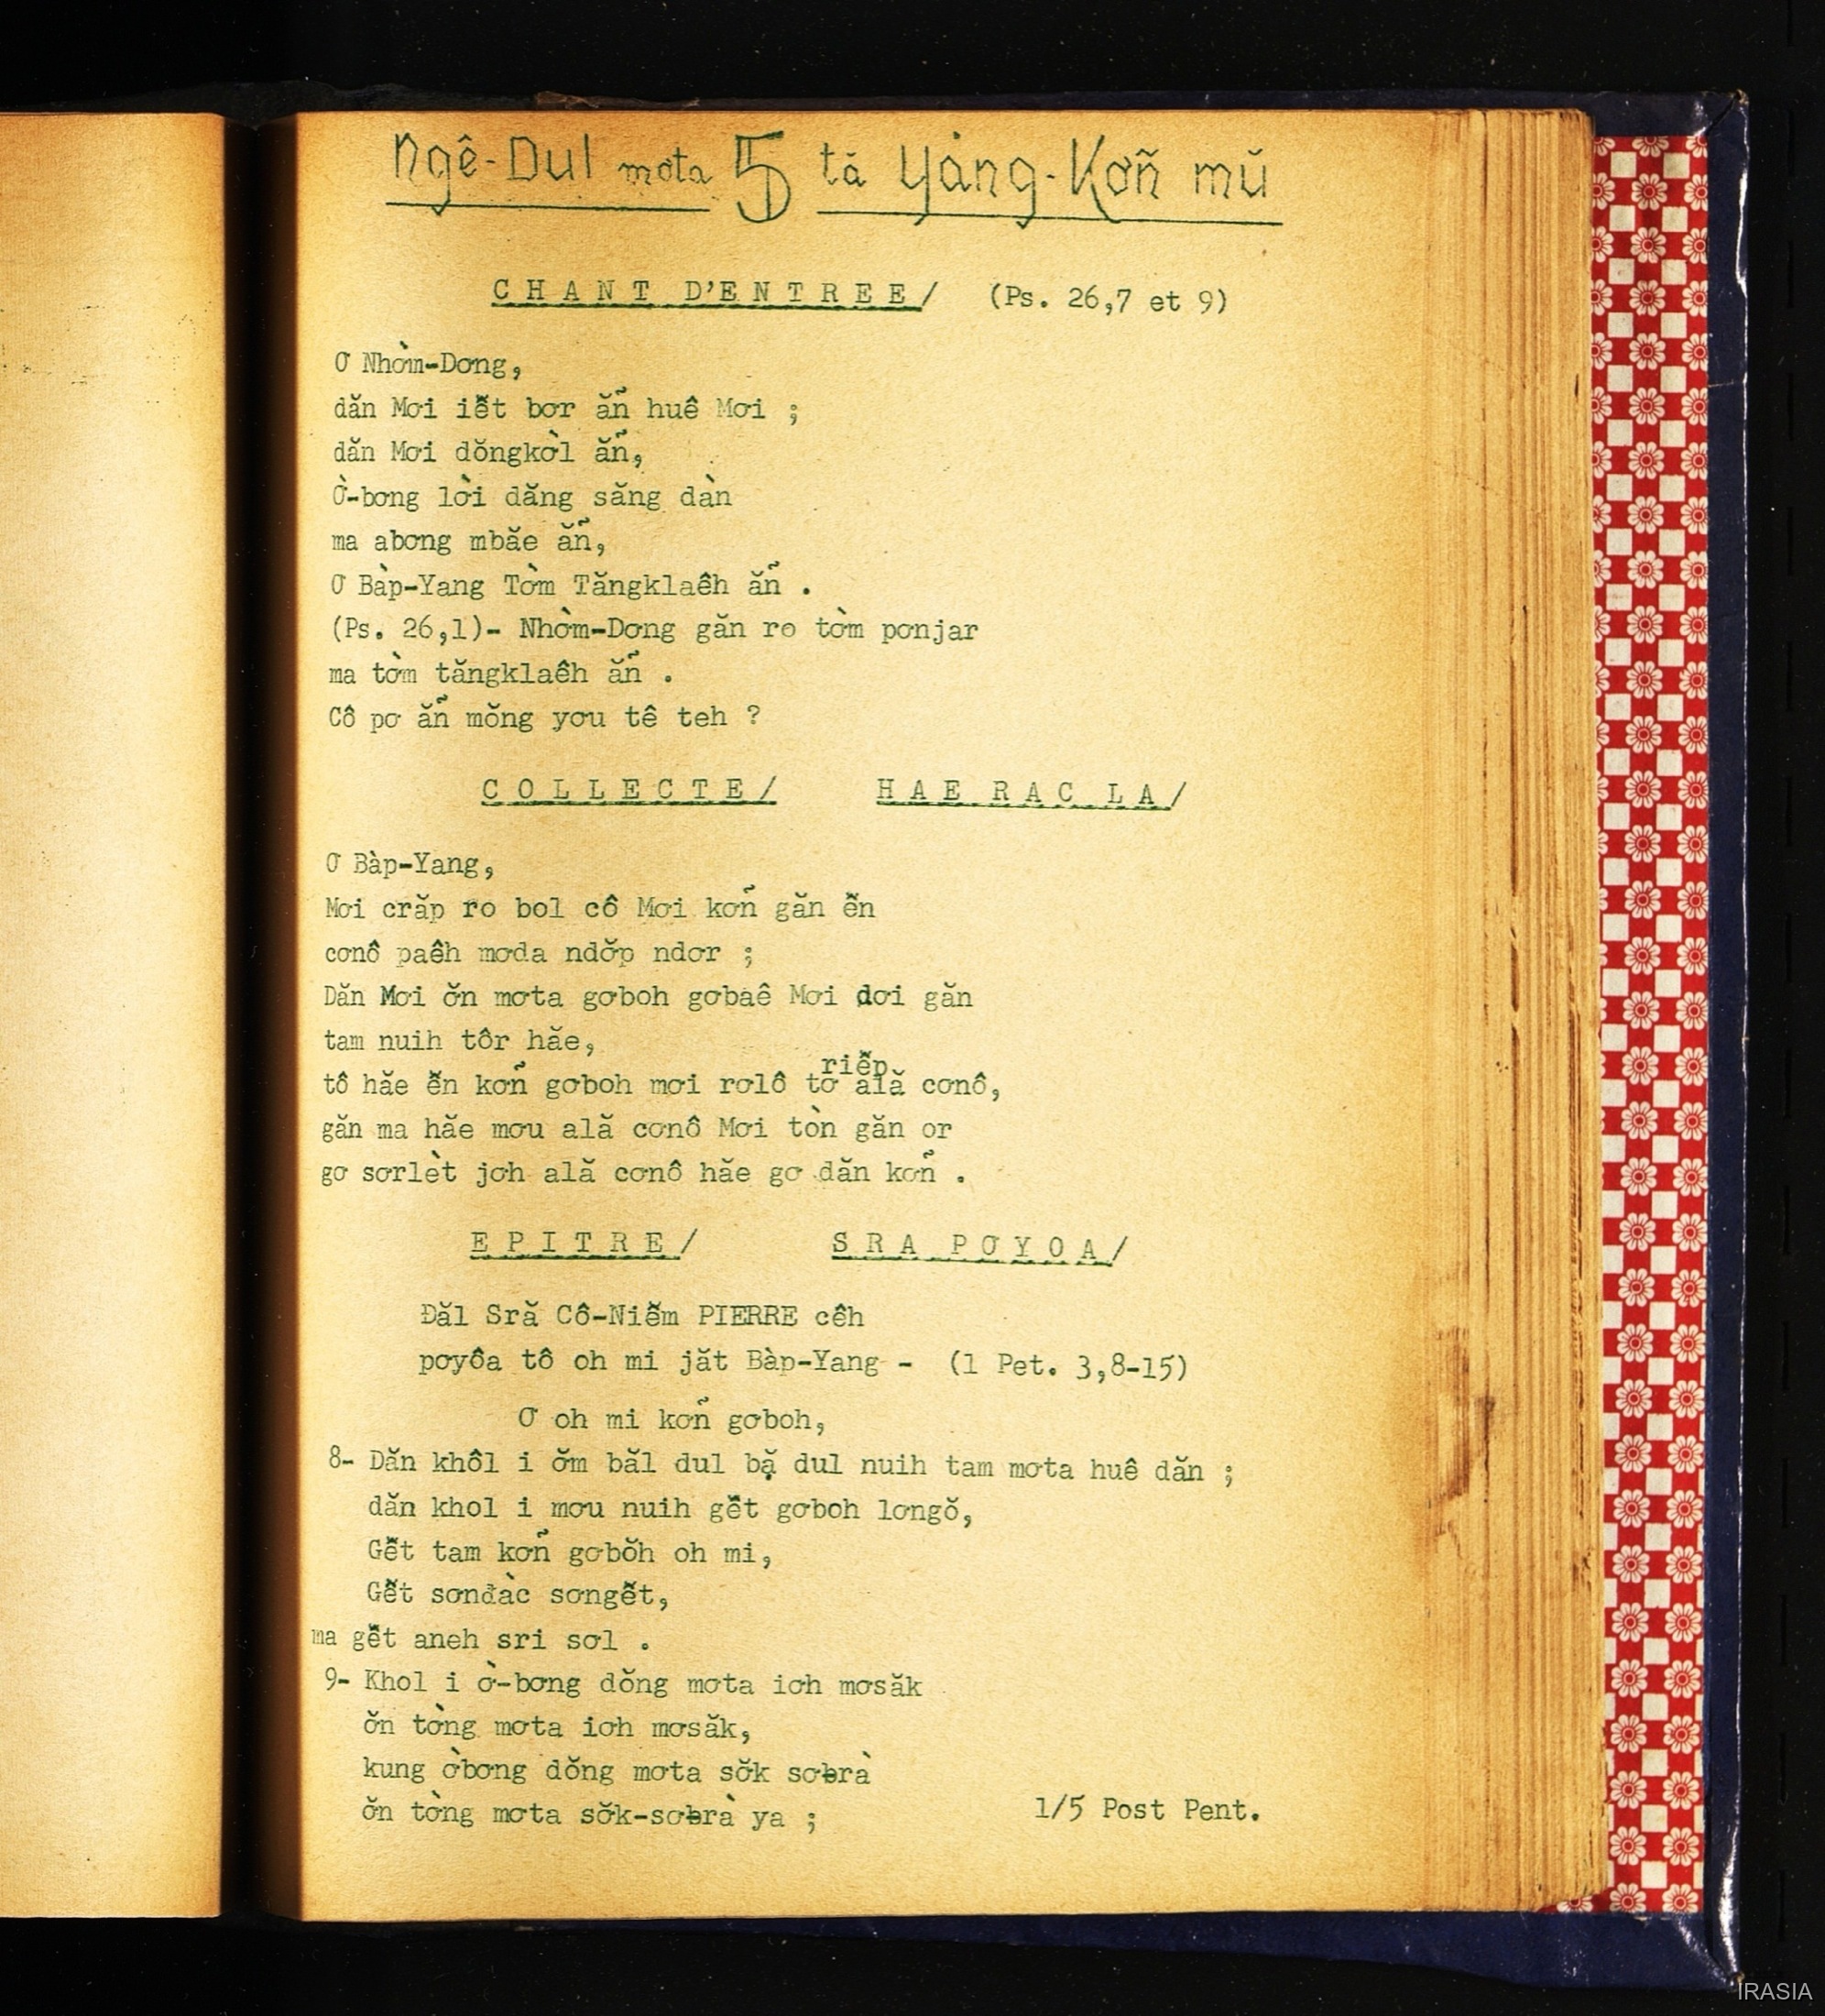 Ngê-Dul mơta 5 tă Yàng-Kơñ mŭ
CHANT D'ENTREE/ (Ps. 26,7 et 9)
Ơ Nhờm-Dơng,
dăn Mơi iê̆t bơr ăñ huê Mơi ;
dăn Mơi dŏngkờl ăñ,
Ờ-bơng lời dăng săng dàn
ma abơng mbăe ăñ,
Ơ Bàp-Yang Tờm Tăngklaêh ăñ .
(Ps. 26,1)- Nhờm-Dơng găn ro tờm pơnjar
ma tờm tăngklaêh ăñ .
Cô pơ ăñ mŏng yơu tê teh ?
COLLECTE/ HAE RAC LA/
Ơ Bàp-Yang,
Mơi crăp ro bol cô Mơi kơñ găn ê̆n
cơnô paêh mơda ndơ̆p ndơr ;
Dăn Mơi ơ̆n mơta gơboh gơbaê Mơi dơi găn
tam nuih tôr hăe,
riê̆p
tô hăe ê̆n kơñ gơboh mơi rơlô tơ ală cơnô,
găn ma hăe mơu ală cơnô Mơi tòn găn or
gơ sơrlèt jơh ală cơnô hăe gơ dăn kơñ .
EPITRE/ SRA PƠYOA/
Đăl Sră Cô-Niê̆m PIERRE cêh
pơyôa tô oh mi jăt Bàp-Yang - (1 Pet. 3,8-15)
Ơ oh mi kơñ gơboh,
8- Dăn khôl i ơ̆m băl dul bặ dul nuih tam mơta huê dăn ;
dăn khol i mơu nuih gê̆t gơboh lơngŏ,
Gê̆t tam kơñ gơbŏh oh mi,
Gê̆t sơnđàc sơngê̆t,
ma gê̆t aneh sri sơl .
9- Khol i ờ-bơng dŏng mơta iơh mơsăk
ơ̆n tờng mơta iơh mơsăk,
kung ờbơng dŏng mơta sơ̆k sơƀrà
ơ̆n tờng mơta sơ̆k-sơƀrà ya ;
1/5 Post Pent.
IRASIA